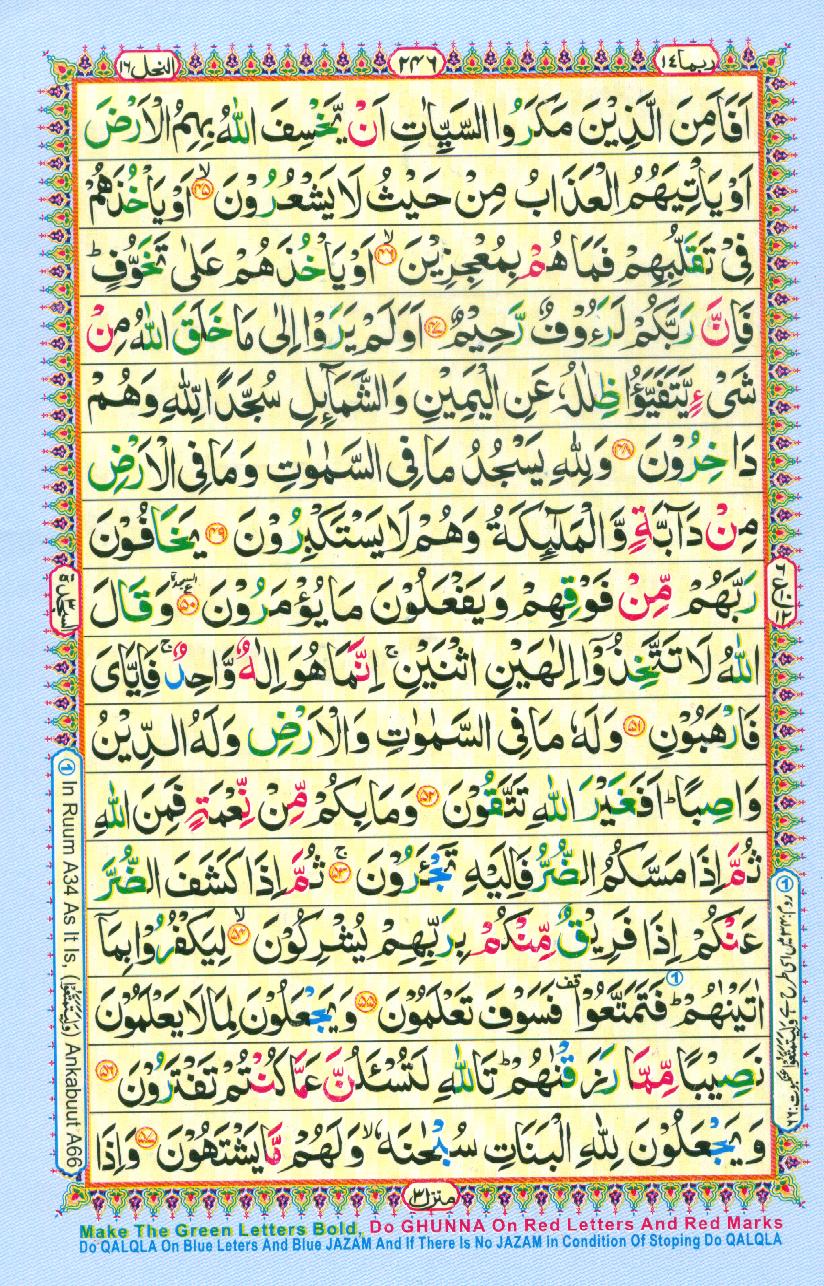 ربما ١٤
٢٤٦
النحل ١٦
اَفَاَمِنَ الَّذِيْنَ مَكَرُوا السَّيِّاٰتِ اَنْ يَّخْسِفَ اللّٰهُ بِهِمُ الْاَرْضَ
اَوْ يَاْتِيَهُمُ الْعَذَابُ مِنْ حَيْثُ لَا يَشْعُرُوْنَ ۙ‏﴿۴۵﴾ اَوْ يَاْخُذَهُمْ
فِىْ تَقَلُّبِهِمْ فَمَا هُمْ بِمُعْجِزِيْنَ ۙ‏﴿۴۶﴾ اَوْ يَاْخُذَهُمْ عَلٰى تَخَوُّفٍ ؕ
فَاِنَّ رَبَّكُمْ لَرَءُوْفٌ رَّحِيْمٌ ﴿۴۷﴾ اَوَلَمْ يَرَوْا اِلٰى مَا خَلَقَ اللّٰهُ مِنْ
شَىْءٍ يَّتَفَيَّؤُا ظِلٰلُهٗ عَنِ الْيَمِيْنِ وَالشَّمَآئِلِ سُجَّدًا لِّلّٰهِ وَهُمْ
دَاخِرُوْنَ ﴿۴۸﴾ وَلِلّٰهِ يَسْجُدُ مَا فِى السَّمٰوٰتِ وَمَا فِى الْاَرْضِ
مِنْ دَآبَّةٍ وَّالْمَلٰٓئِكَةُ وَهُمْ لَا يَسْتَكْبِرُوْنَ ﴿۴۹﴾ يَخَافُوْنَ
رَبَّهُمْ مِّنْ فَوْقِهِمْ وَيَفْعَلُوْنَ مَا يُؤْمَرُوْنَ ﴿۵۰﴾ وَقَالَ
اللّٰهُ لَا تَتَّخِذُوْٓا اِلٰهَيْنِ اثْنَيْنِ ۚ اِنَّمَا هُوَ اِلٰهٌ وَّاحِدٌ ۚ فَاِيَّاىَ
فَارْهَبُوْنِ ﴿۵۱﴾ وَلَهٗ مَا فِى السَّمٰوٰتِ وَالْاَرْضِ وَلَهُ الدِّيْنُ
وَاصِبًا ؕ اَفَغَيْرَ اللّٰهِ تَتَّقُوْنَ ﴿۵۲﴾ وَمَا بِكُمْ مِّنْ نِّعْمَةٍ فَمِنَ اللّٰهِ
ثُمَّ اِذَا مَسَّكُمُ الضُّرُّ فَاِلَيْهِ تَجْئَرُوْنَ ۚ‏﴿۵۳﴾ ثُمَّ اِذَا كَشَفَ الضُّرَّ
عَنْكُمْ اِذَا فَرِيْقٌ مِّنْكُمْ بِرَبِّهِمْ يُشْرِكُوْنَ ۙ‏﴿۵۴﴾ لِيَكْفُرُوْا بِمَاۤ
اٰتَيْنٰهُمْ ؕ فَتَمَتَّعُوْا ۟قف فَسَوْفَ تَعْلَمُوْنَ ﴿۵۵﴾ وَيَجْعَلُوْنَ لِمَا لَا يَعْلَمُوْنَ
نَصِيْبًا مِّمَّا رَزَقْنٰهُمْ ؕ تَاللّٰهِ لَتُسْئَلُنَّ عَمَّا كُنْتُمْ تَفْتَرُوْنَ ﴿۵۶﴾
وَيَجْعَلُوْنَ لِلّٰهِ الْبَنٰتِ سُبْحٰنَهٗ ۙ وَلَهُمْ مَّا يَشْتَهُوْنَ ﴿۵۷﴾ وَاِذَا
السجدة ٣
① In Ruum A34 As It Is, (وَلِيَتَمَتَّعُوْا) Ankabuut A66
منزل ٣
Make The Green Letters Bold, Do GHUNNA On Red Letters And Red Marks
Do QALQLA On Blue Leters And Blue JAZAM And If There Is No JAZAM In Condition Of Stoping Do QALQLA